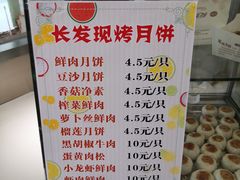 长发现烤月饼
鲜肉月饼 4.5元/只
豆沙月饼 4.5元/只
香菇净素 4.5元/只
榨菜鲜肉 4.5元/只
萝卜丝鲜肉 4.5元/只
榴莲月饼 4.5元/只
黑胡椒牛肉 10元/只
蛋黄肉松 10元/只
小龙虾鲜肉 10元/只
虾肉鲜肉 10元/只